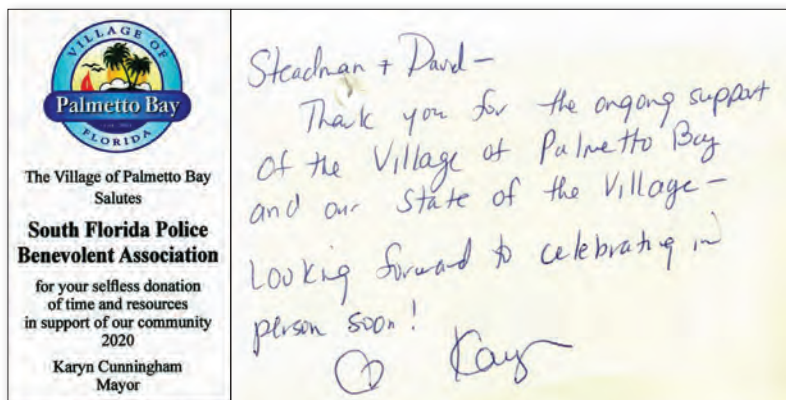 VILLAGE OF
Palmetto Bay
FLORIDA
The Village of Palmetto Bay
Salutes
South Florida Police
Benevolent Association
for your selfless donation
of time and resources
in support of our community
2020
Karyn Cunningham
Mayor
Steadman + David –
Thank you for the ongong support
of the Village of Palmetto Bay
and our State of the Village –
Looking forward to celebrating in
person soon!
Karyn